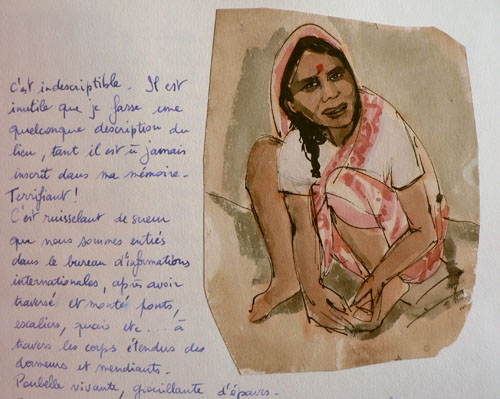 C'est indescriptible. Il est
inutile que je fasse une
quelconque description du
lieu, tant il est à jamais
inscrit dans ma mémoire.
Terrifiant !
C'est ruisselant de sueur
que nous sommes entrés
dans le bureau d'informations
internationales, après avoir
traversé et monté ponts,
escaliers, quais etc... à
travers les corps étendus des
dormeurs et mendiants.
Poubelle vivante, grouillante d'épaves.